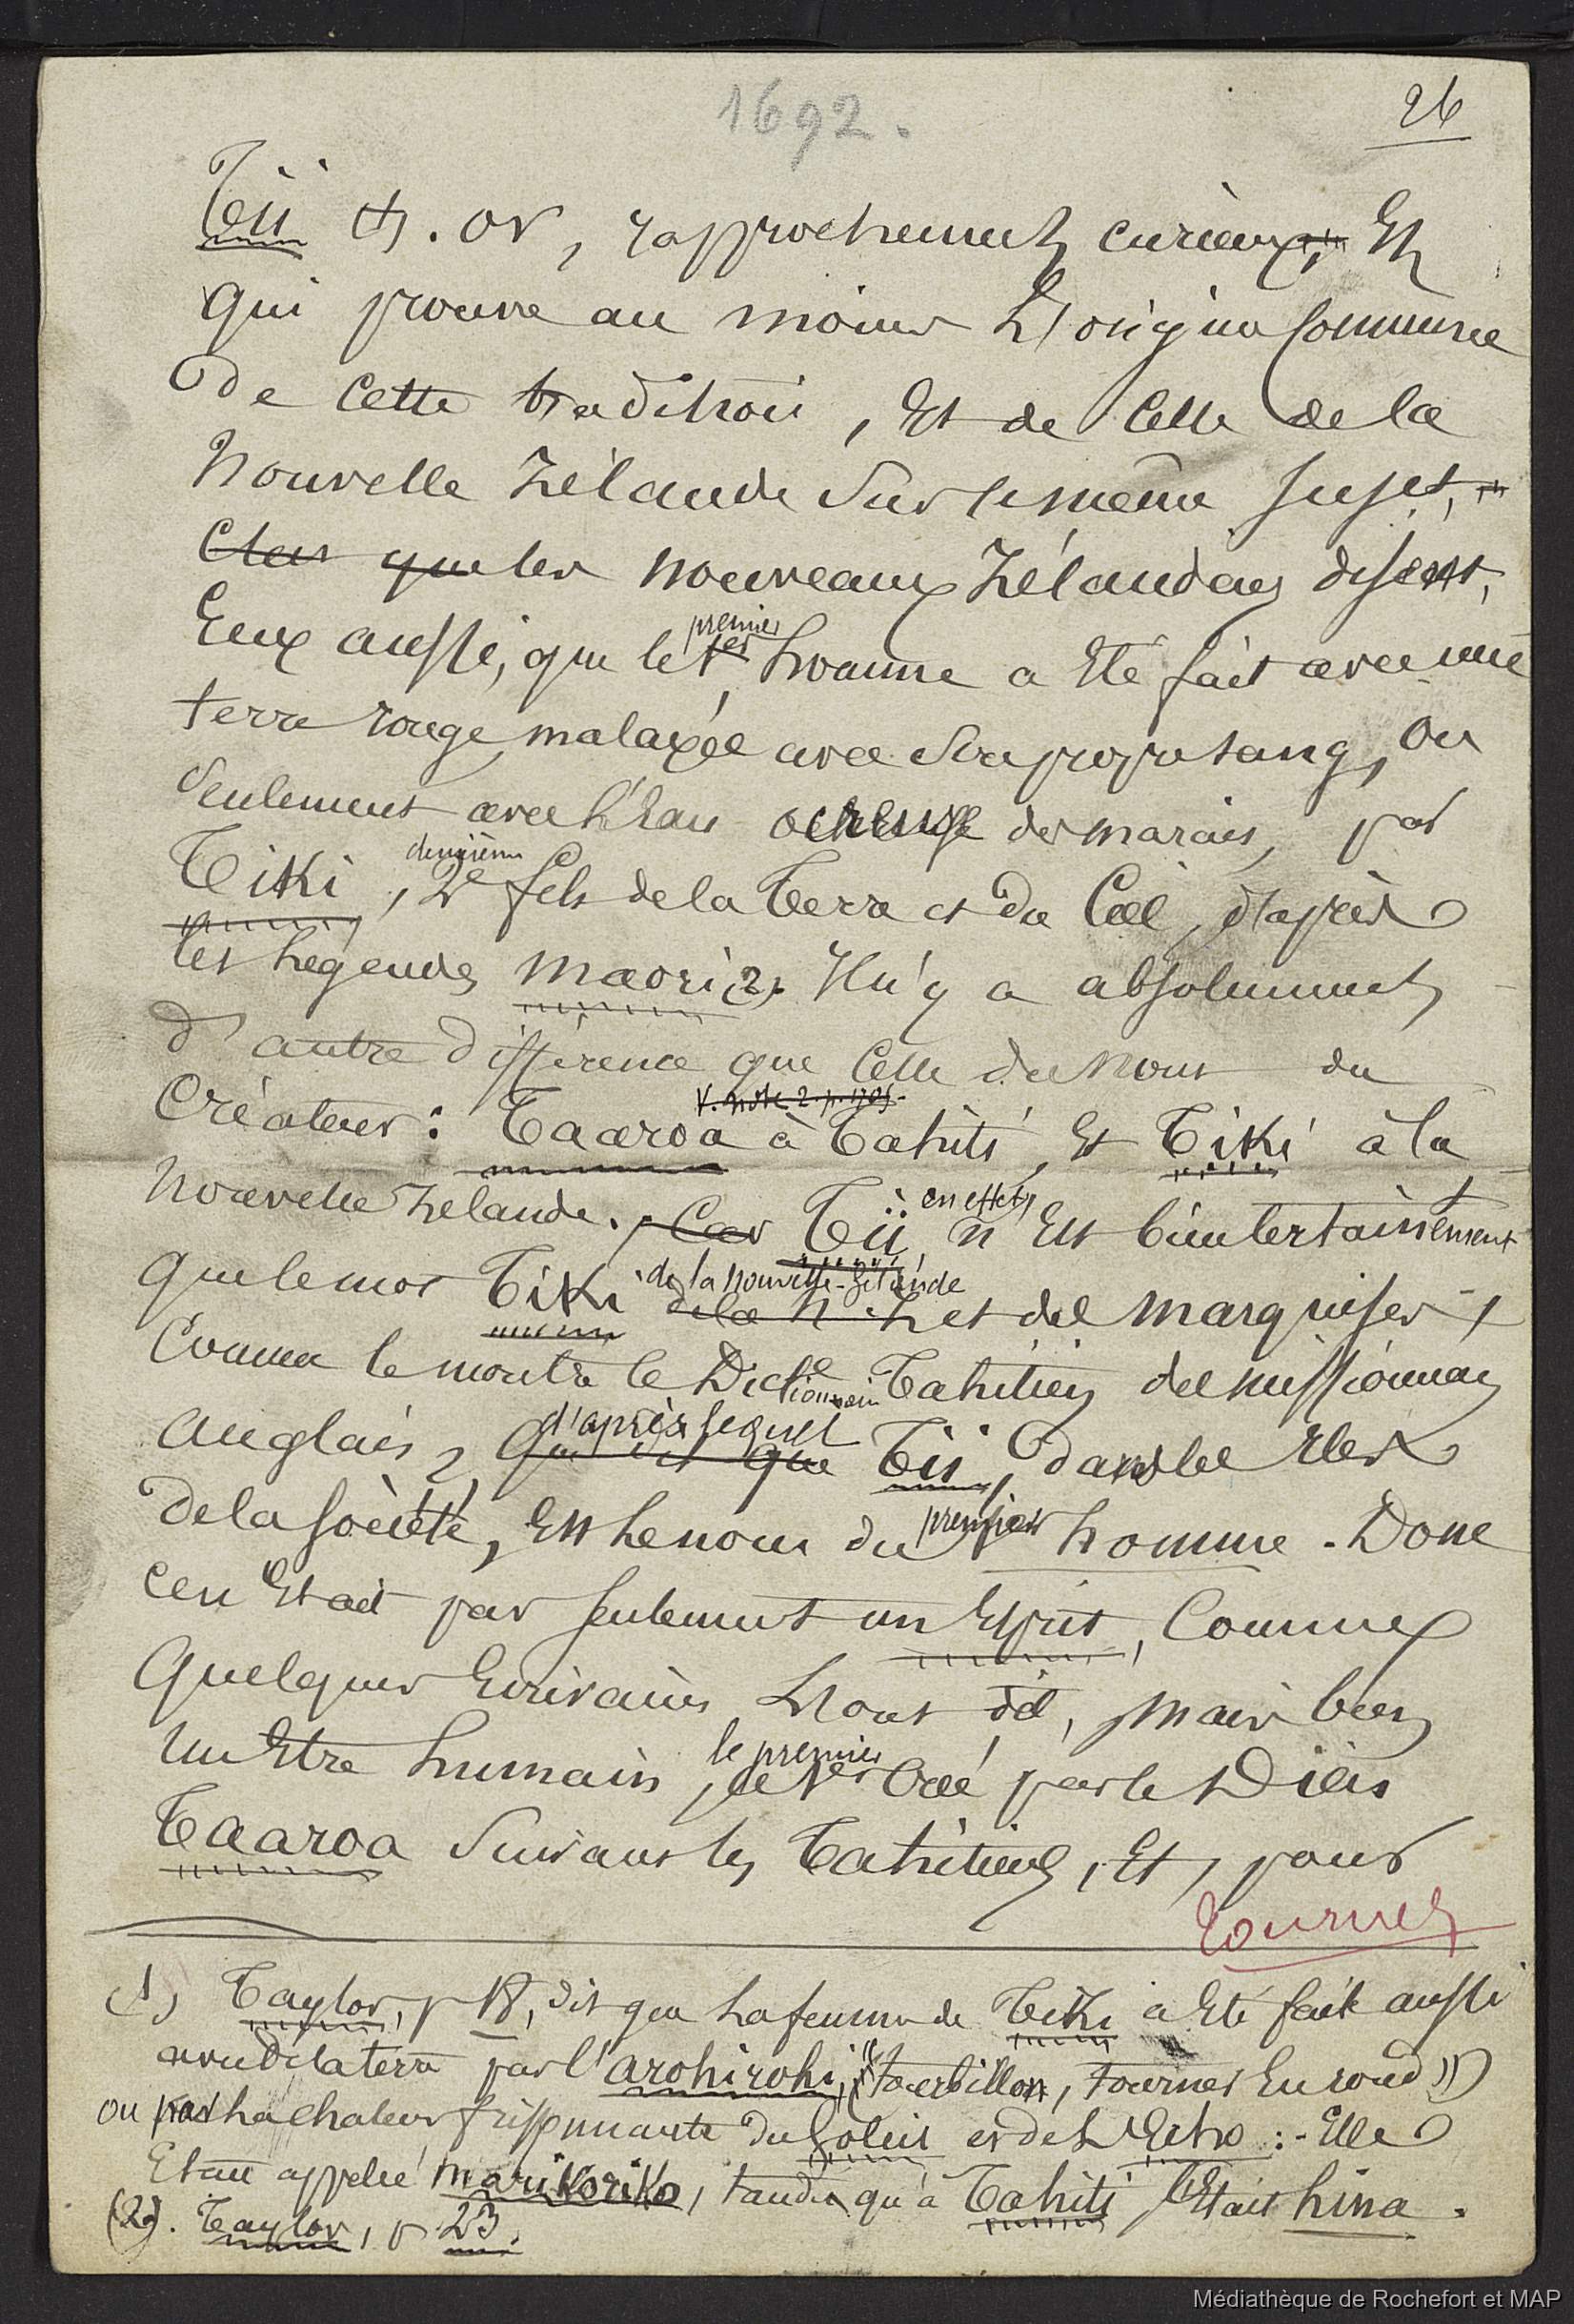 1692.
26
Tii (1). Or, rapprochement curieux, Et
qui prouve au moins L'origine Commune
De cette tradition, Et de Celle de la
Nouvelle Zélande Sur le même Sujet,
Car que les nouveaux Zélandais disent,
Eux aussi, que le 1er premier homme a Eté fait avec une
terre rouge, malaxée avec Son propre sang, ou
Seulement avec l'Eau ocreuse des marais, par
Tiki, 2e deuxième fils de la Terre et du Ciel, d'après
les Légendes Maori (2). Il n'y a absolument
d'autre différence que Celle du Nom du
V. note 2. p. 1705.
Créateur : Taaroa à Tahiti, Et Tiki à la
Nouvelle Zélande. Car Tii, en effet, n'Est bien certainement
que le mot Tiki de la N. Z. de la Nouvelle-Zélande et des Marquises,
Comme le montre le Dictionnaire Tahitien des missionnaires
Anglais, qui dit que d'après lequel Tii, dans les Iles
De la Société, Est Le nom du 1er premier homme. Donc
ce n'Etait pas seulement un Esprit, Comme
quelques Ecrivains L'ont dit, mais bien
un Etre humain, le 1er le premier Créé par le Dieu
Taaroa Suivant les Tahitiens, Et, pour
tournez
(1) Taylor, p 18, dit que La femme de Tiki a Eté faite aussi
avec de la terre par l'arohirohi, (« tourbillon, tourner En rond »)
ou par La chaleur frissonnante du Soleil et de L'Echo : - Elle
Etait appelée Marikoriko, tandis qu'à Tahiti c'Etait hina.
(2). Taylor, p 23.
Médiathèque de Rochefort et MAP